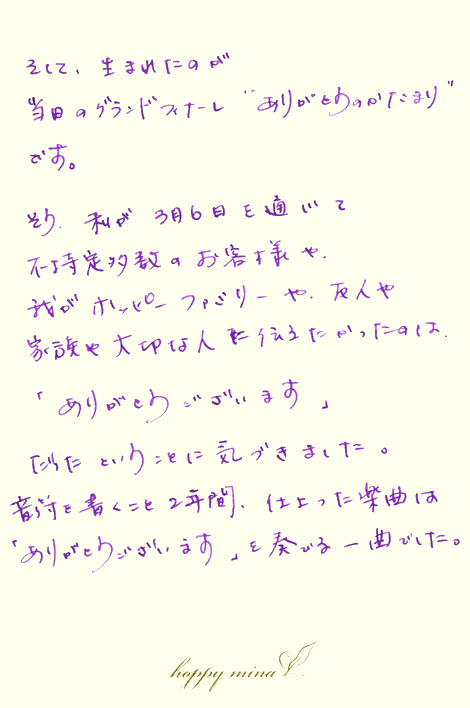 そして、生まれたのが
当日のグランドフィナーレ "ありがとうのかたまり"
です。
そう、私が 3月6日を通じて
不特定多数のお客様や、
我がホッピーファミリーや、友人や
家族や大切な人に伝えたかったのは、
「ありがとうございます」
だったということに気づきました。
音符を書くこと2年間、仕上った楽曲は
「ありがとうございます」を奏でる一曲でした。
hoppy mina